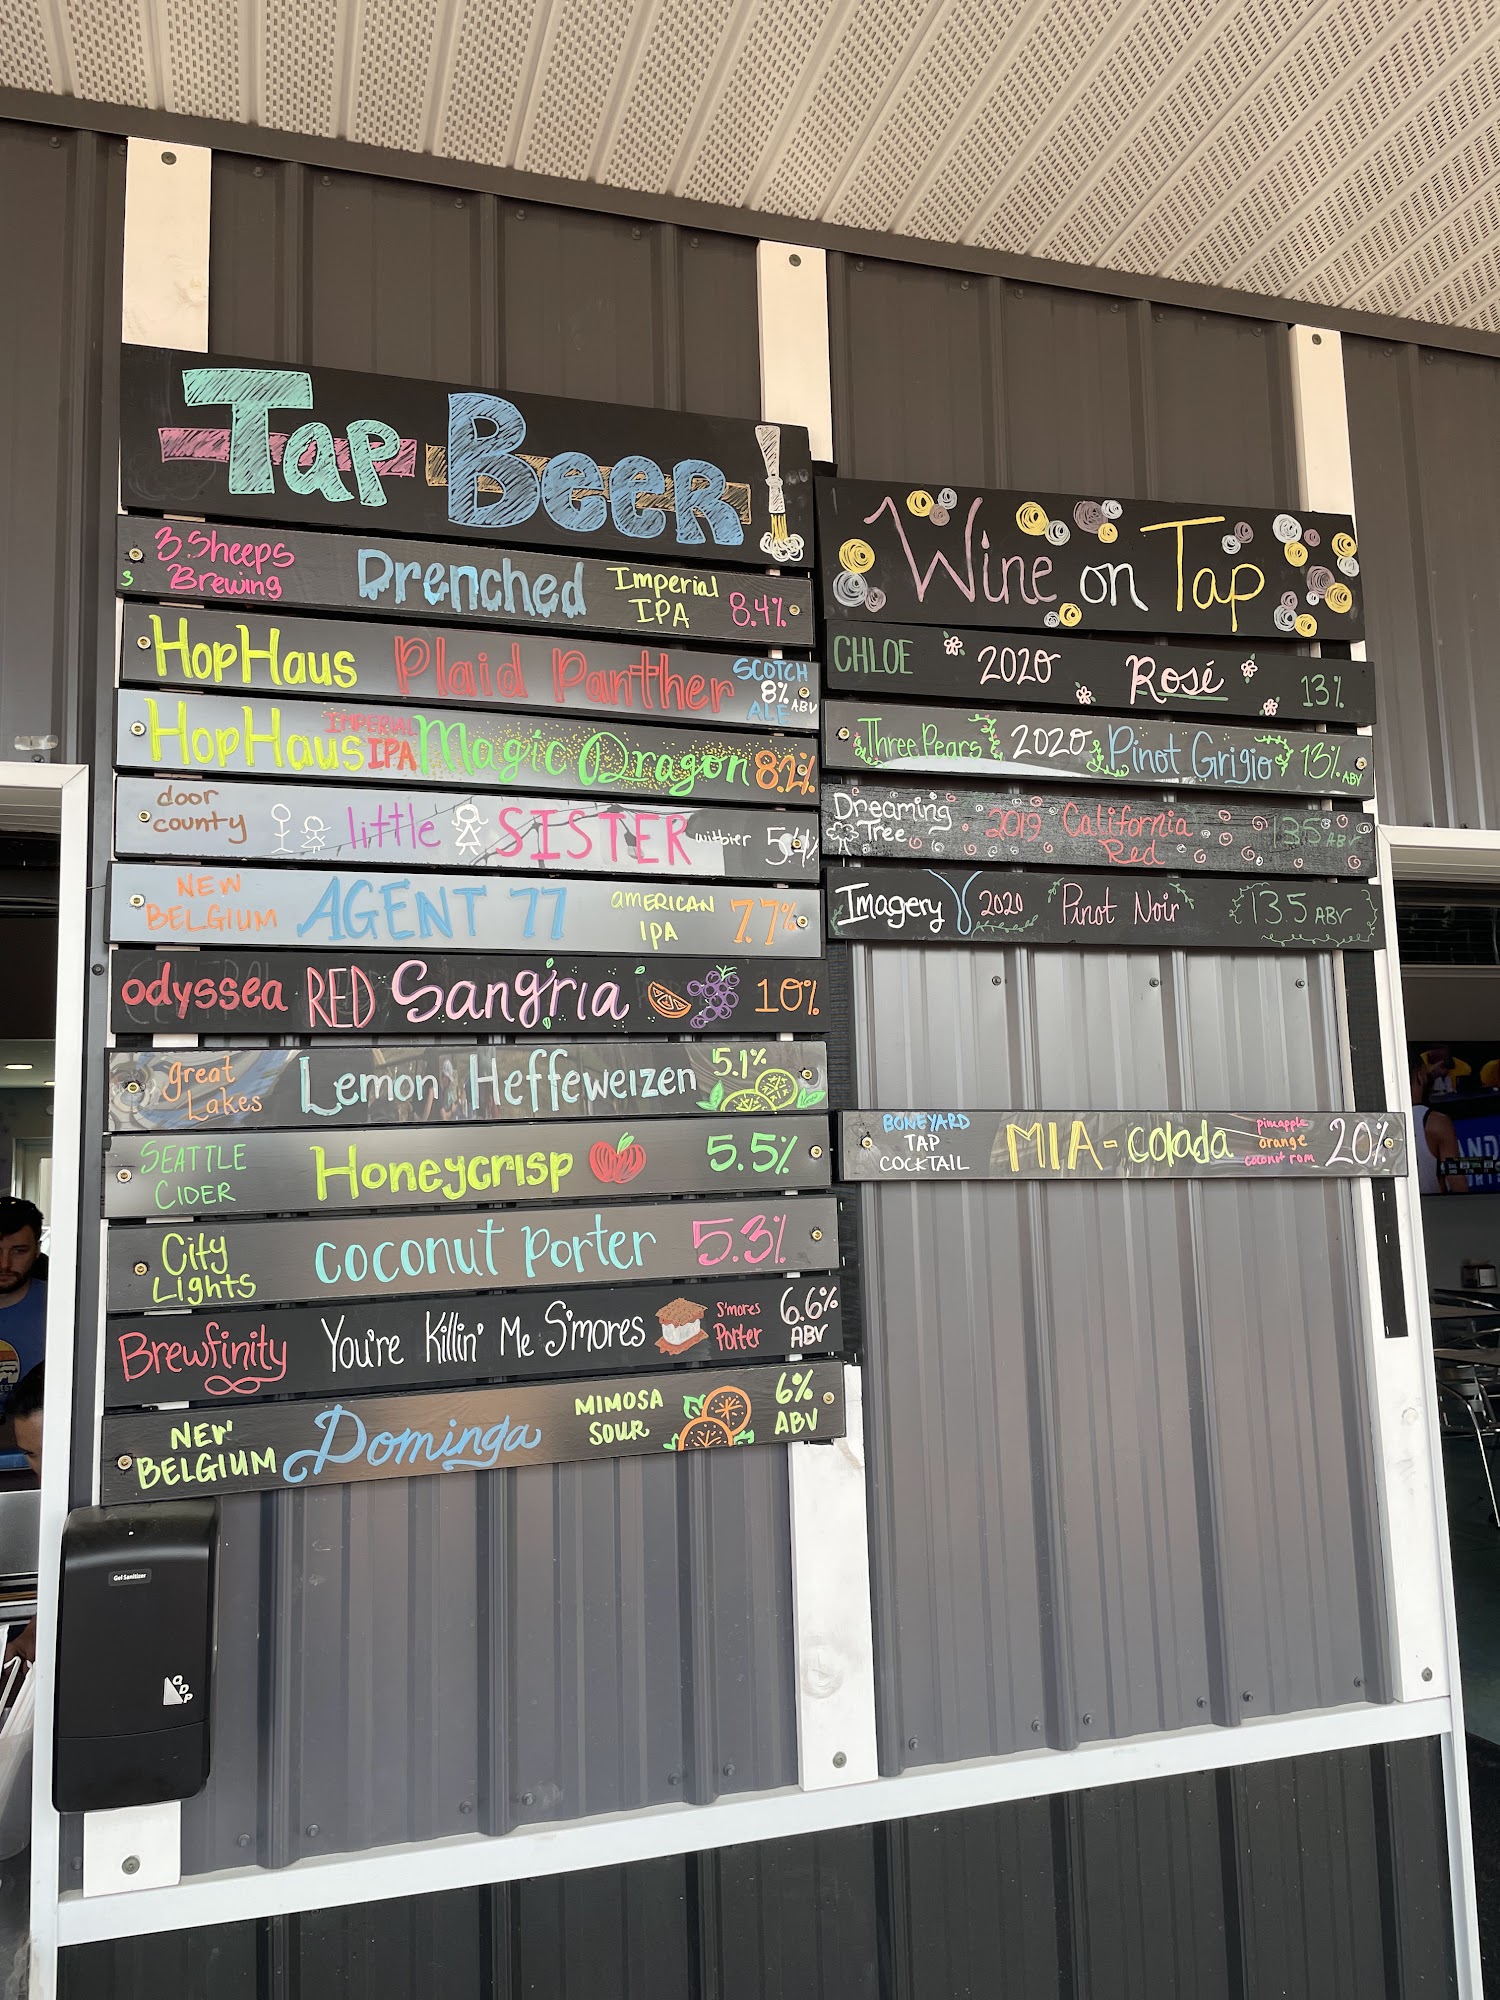 Tap Beer
3 Sheeps
Brewing
3
Drenched
Imperial
IPA
8.4%
HopHaus
Plaid Panther
SCOTCH
8% ABV
ALE
HopHaus
IMPERIAL
IPA
Magic Dragon
8.2%
door
county
little SISTER
witbier
NEW
BELGIUM
AGENT 77
AMERICAN
IPA
7.7%
odyssea
RED Sangria
10%
great
Lakes
Lemon Heffeweizen
5.1%
SEATTLE
CIDER
Honeycrisp
5.5%
City
Lights
coconut porter
5.3%
Brewfinity
You're Killin' Me S'mores
S'mores
Porter
6.6%
ABV
NEW
BELGIUM
Dominga
MIMOSA
SOUR
6%
ABV
Wine on Tap
CHLOE
2020
Rosé
13%
Three Pears
2020
Pinot Grigio
13% ABV
Dreaming
Tree
2019
California
Red
13.5 ABV
Imagery
2020
Pinot Noir
13.5 ABV
BONEYARD
TAP
COCKTAIL
MIA-colada
pineapple
orange
coconut rum
20%
Gel Sanitizer